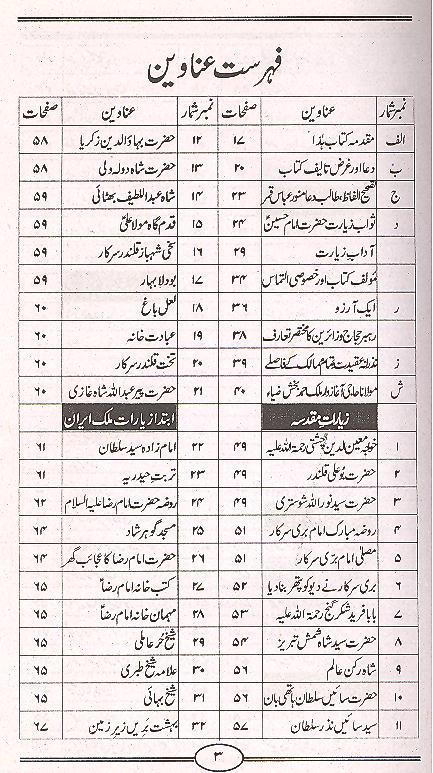 فہرست عناوین
نمبر شمار عناوین صفحات نمبر شمار عناوین صفحات
الف مقدمہ کتاب ہذا ۱۷ ۱۲ حضرت بہاؤ الدین زکریا ۵۸
ب دعا اور غرض تالیف کتاب ۲۰ ۱۳ حضرت شاہ دولہ ولی ۵۸
ج تصحیح الفاظ، طالب دعا منور عباس قمر ۲۳ ۱۴ شاہ عبد اللطیف بھٹائی ۵۹
د ثواب زیارت حضرت امام حسینؑ ۲۴ ۱۵ قدم گاہ مولا علیؑ ۵۹
آداب زیارت ۲۹ ۱۶ سخی شہباز قلندر سرکار ۵۹
مؤلف کتاب اور خصوصی التماس ۳۴ ۱۷ بودلا بہار ۵۹
ر ایک آرزو ۳۶ ۱۸ لعل باغ ۶۰
رہبر حجاج و زائرین کا مختصر تعارف ۳۸ ۱۹ عبادت خانہ ۶۰
ز نذرانۂ عقیدت و تمام ممالک کے فاصلے ۳۹ ۲۰ تخت قلندر سرکار ۶۰
ش مولانا حاجی آغا زوار ملک احمد بخش ضیاء ۴۰ ۲۱ حضرت پیر عبداللہ شاہ غازی ۶۰
زیارات مقدسہ ابتداء زیارات ملک ایران
۱ خواجہ معین الدین چشتی رحمۃ اللہ علیہ ۴۹ ۲۲ امام زادہ سید سلطان ۶۱
۲ حضرت بو علی قلندر ۴۹ ۲۳ تربت حیدریہ ۶۱
۳ حضرت سید نور اللہ شوستری ۴۹ ۲۴ روضہ حضرت امام رضا علیہ السلام ۶۲
۴ روضہ مبارک امام بری سرکار ۵۱ ۲۵ مسجد گوہر شاد ۶۴
۵ مصلیٰ امام بری سرکار ۵۱ ۲۶ حضرت امام رضا کا عجائب گھر ۶۴
۶ بری سرکار نے دیو کو پتھر بنا دیا ۵۲ ۲۷ کتب خانہ امام رضاؑ ۶۵
۷ بابا فرید شکر گنج رحمۃ اللہ علیہ ۵۳ ۲۸ مہمان خانہ امام رضاؑ ۶۵
۸ حضرت سید شاہ شمش تبریز ۵۴ ۲۹ شیخ حُر عاملی ۶۵
۹ شاہ رکن عالم ۵۶ ۳۰ علامہ شیخ طبری ۶۵
۱۰ حضرت سائیں سلطان ہاتھی بان ۵۶ ۳۱ شیخ بہائی ۶۵
۱۱ سید سائیں نذر سلطان ۵۷ ۳۲ بہشت بریں زیر زمین ۶۷
۳